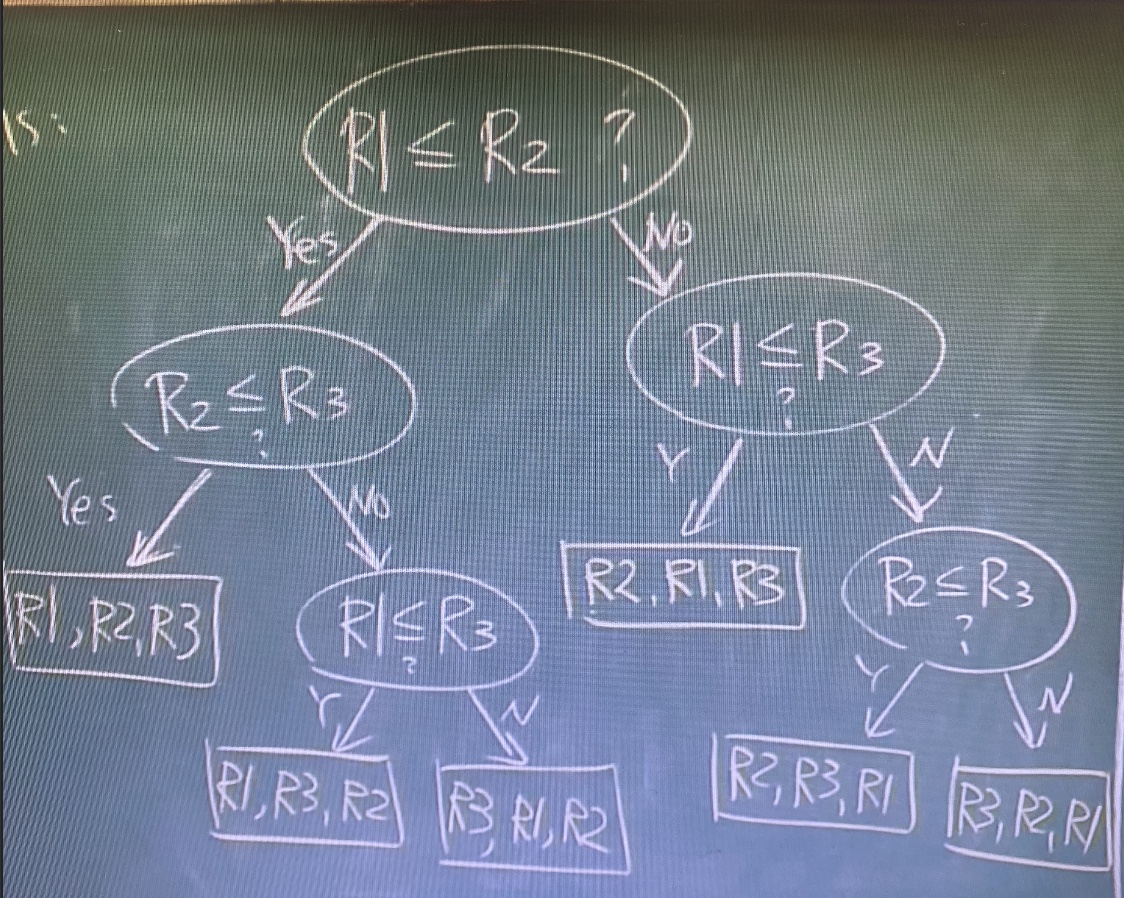 R1 ≤ R2 ?
Yes
No
R1 ≤ R3
?
R2 ≤ R3
?
Yes
No
Y
N
R1, R2, R3
R1 ≤ R3
?
R2, R1, R3
R2 ≤ R3
?
Y
N
Y
N
R1, R3, R2
R3, R1, R2
R2, R3, R1
R3, R2, R1